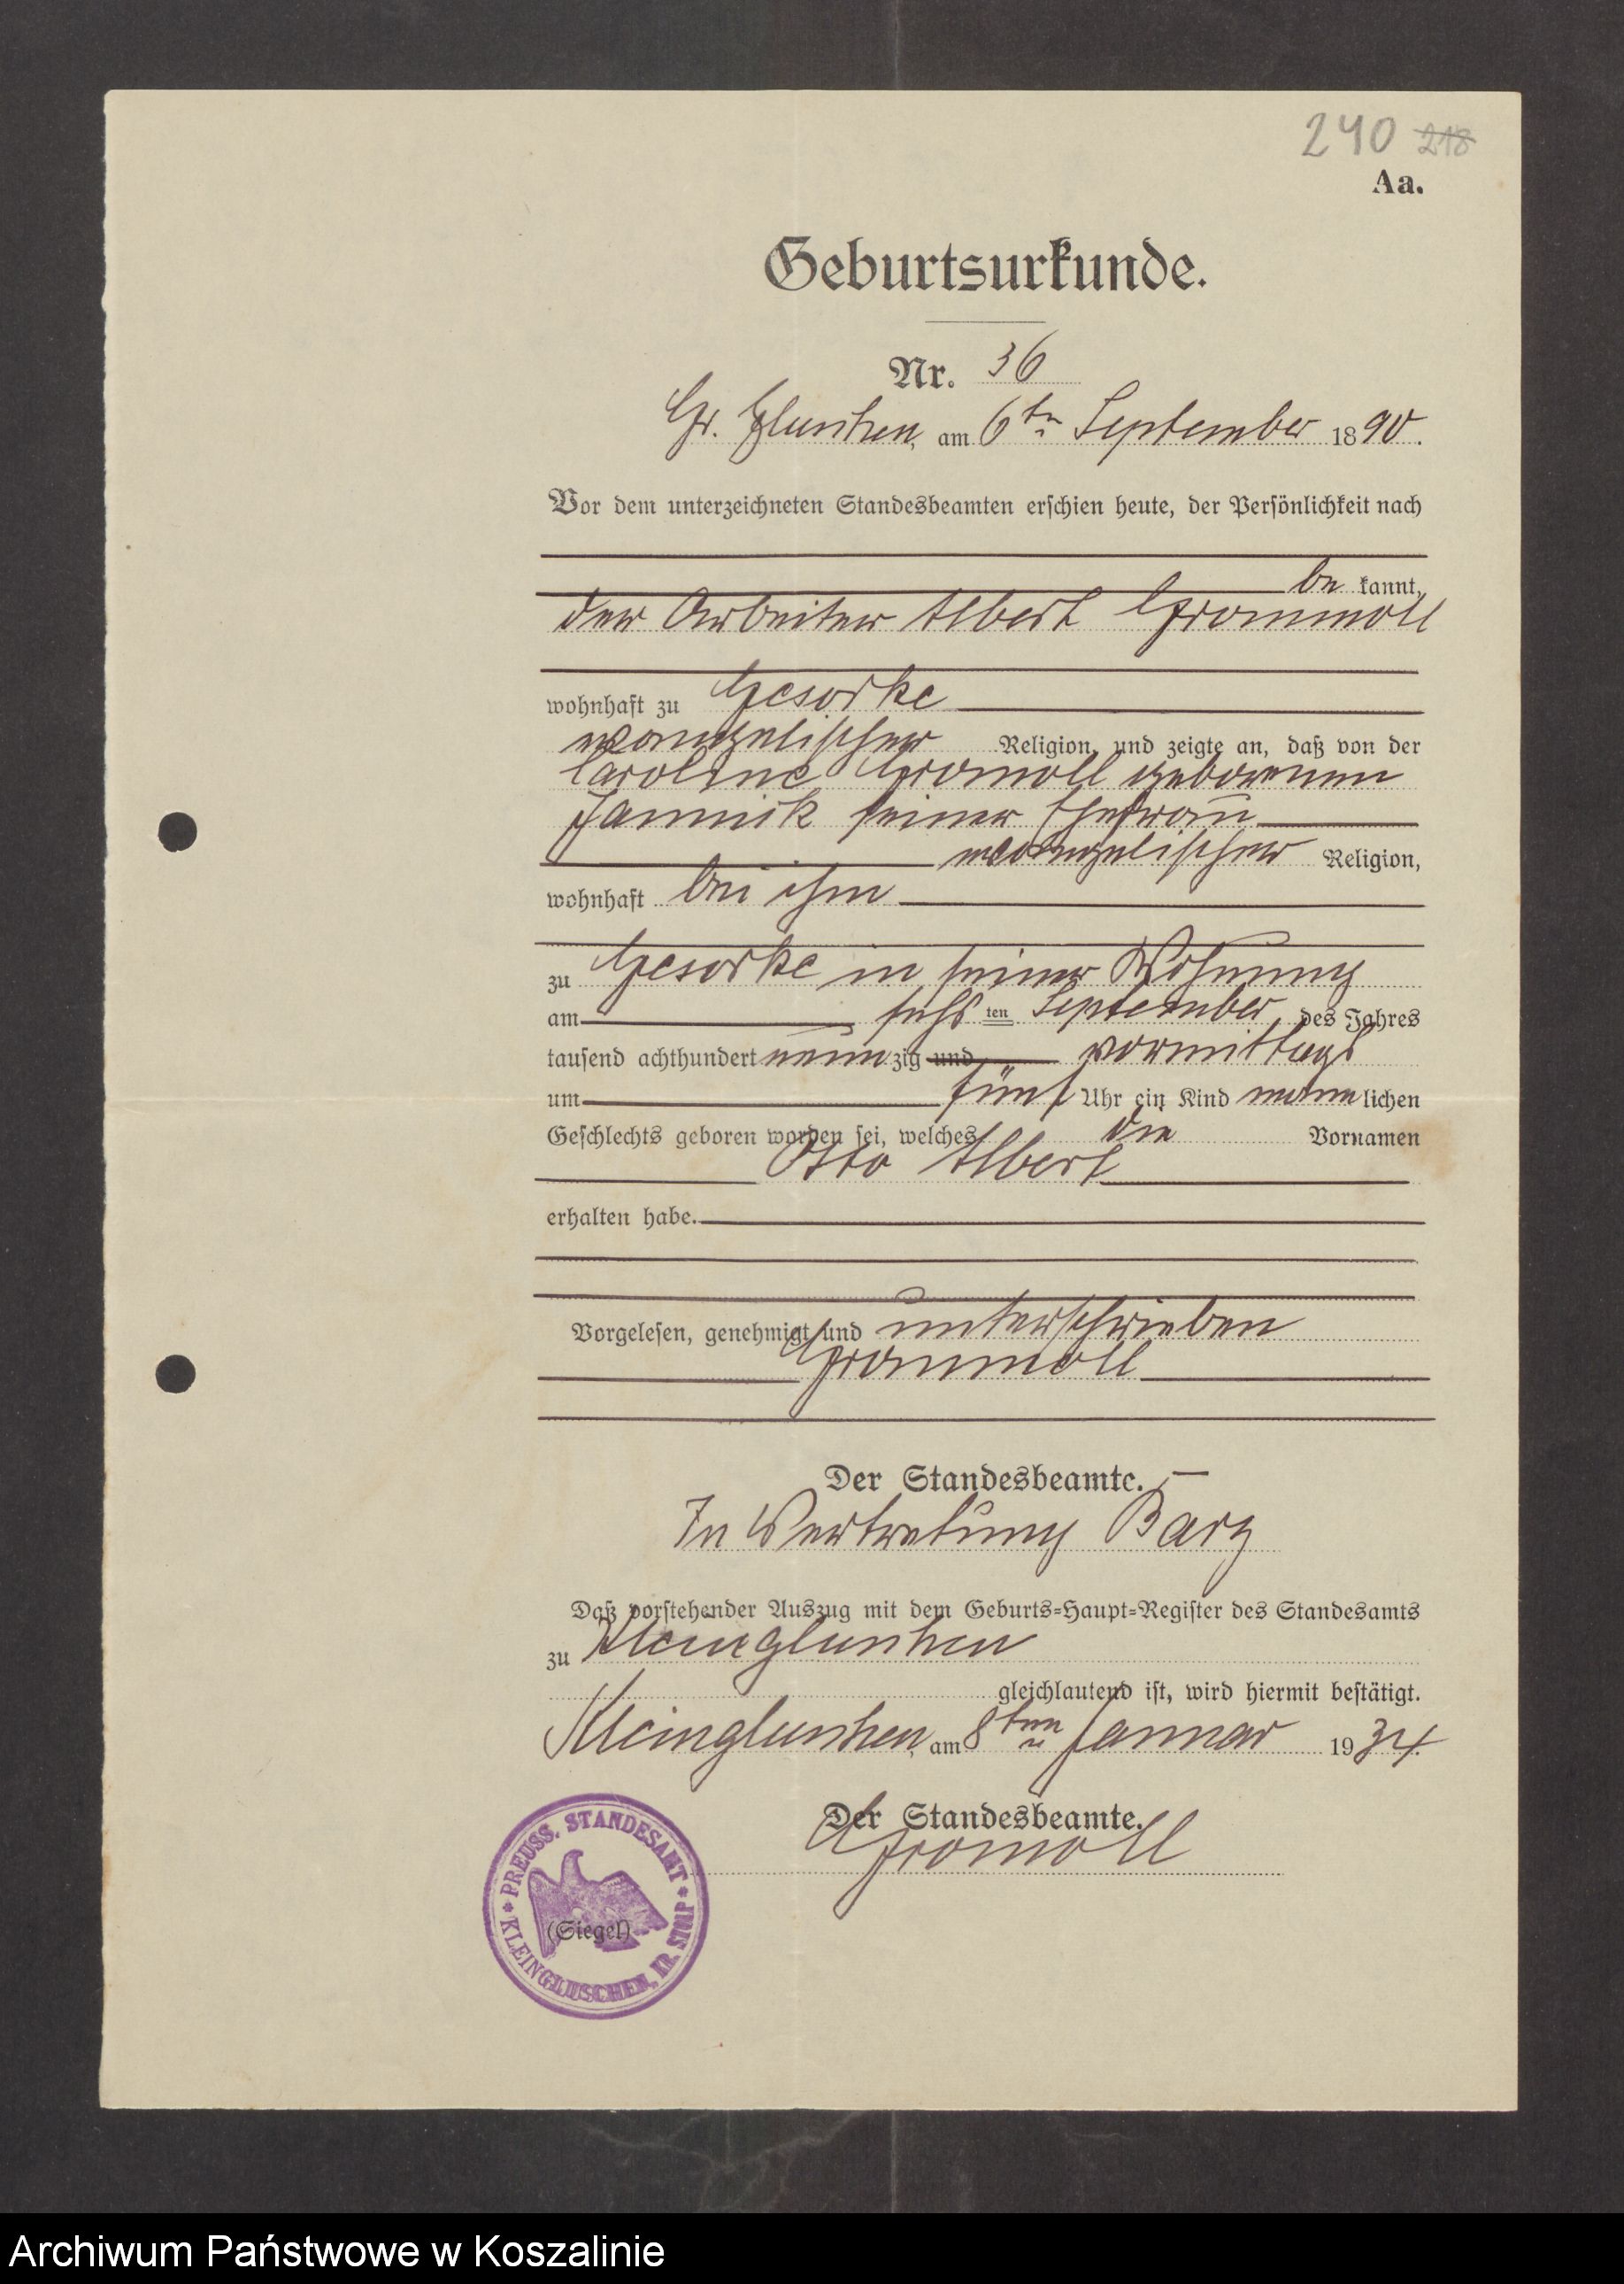 240 218
Aa.
Geburtsurkunde.
Nr. 36
Gr. Gluschen, am 6ten September 1890.
Vor dem unterzeichneten Standesbeamten erschien heute, der Persönlichkeit nach
be kannt,
der Arbeiter Albert Grommoll
wohnhaft zu Gesorke
evangelischer Religion, und zeigte an, daß von der
Caroline Gromoll geborenen
Jannick seiner Ehefrau
evangelischer Religion,
wohnhaft bei ihm
zu Gesorke in seiner Wohnung
am sechsten September des Jahres
tausend achthundert neunzig und vormittags
um fünf Uhr ein Kind männlichen
Geschlechts geboren worden sei, welches die Vornamen
Otto Albert
erhalten habe.
Vorgelesen, genehmigt und unterschrieben
Grommoll
Der Standesbeamte.
In Vertretung Barz
Daß vorstehender Auszug mit dem Geburts-Haupt-Register des Standesamts
zu Kleingluschen
gleichlautend ist, wird hiermit bestätigt.
Kleingluschen, am 8ten Januar 1934.
Der Standesbeamte.
Gromoll
(Siegel)
* PREUSS. STANDESAMT * KLEINGLUSCHEN, KR. STOLP
Archiwum Państwowe w Koszalinie